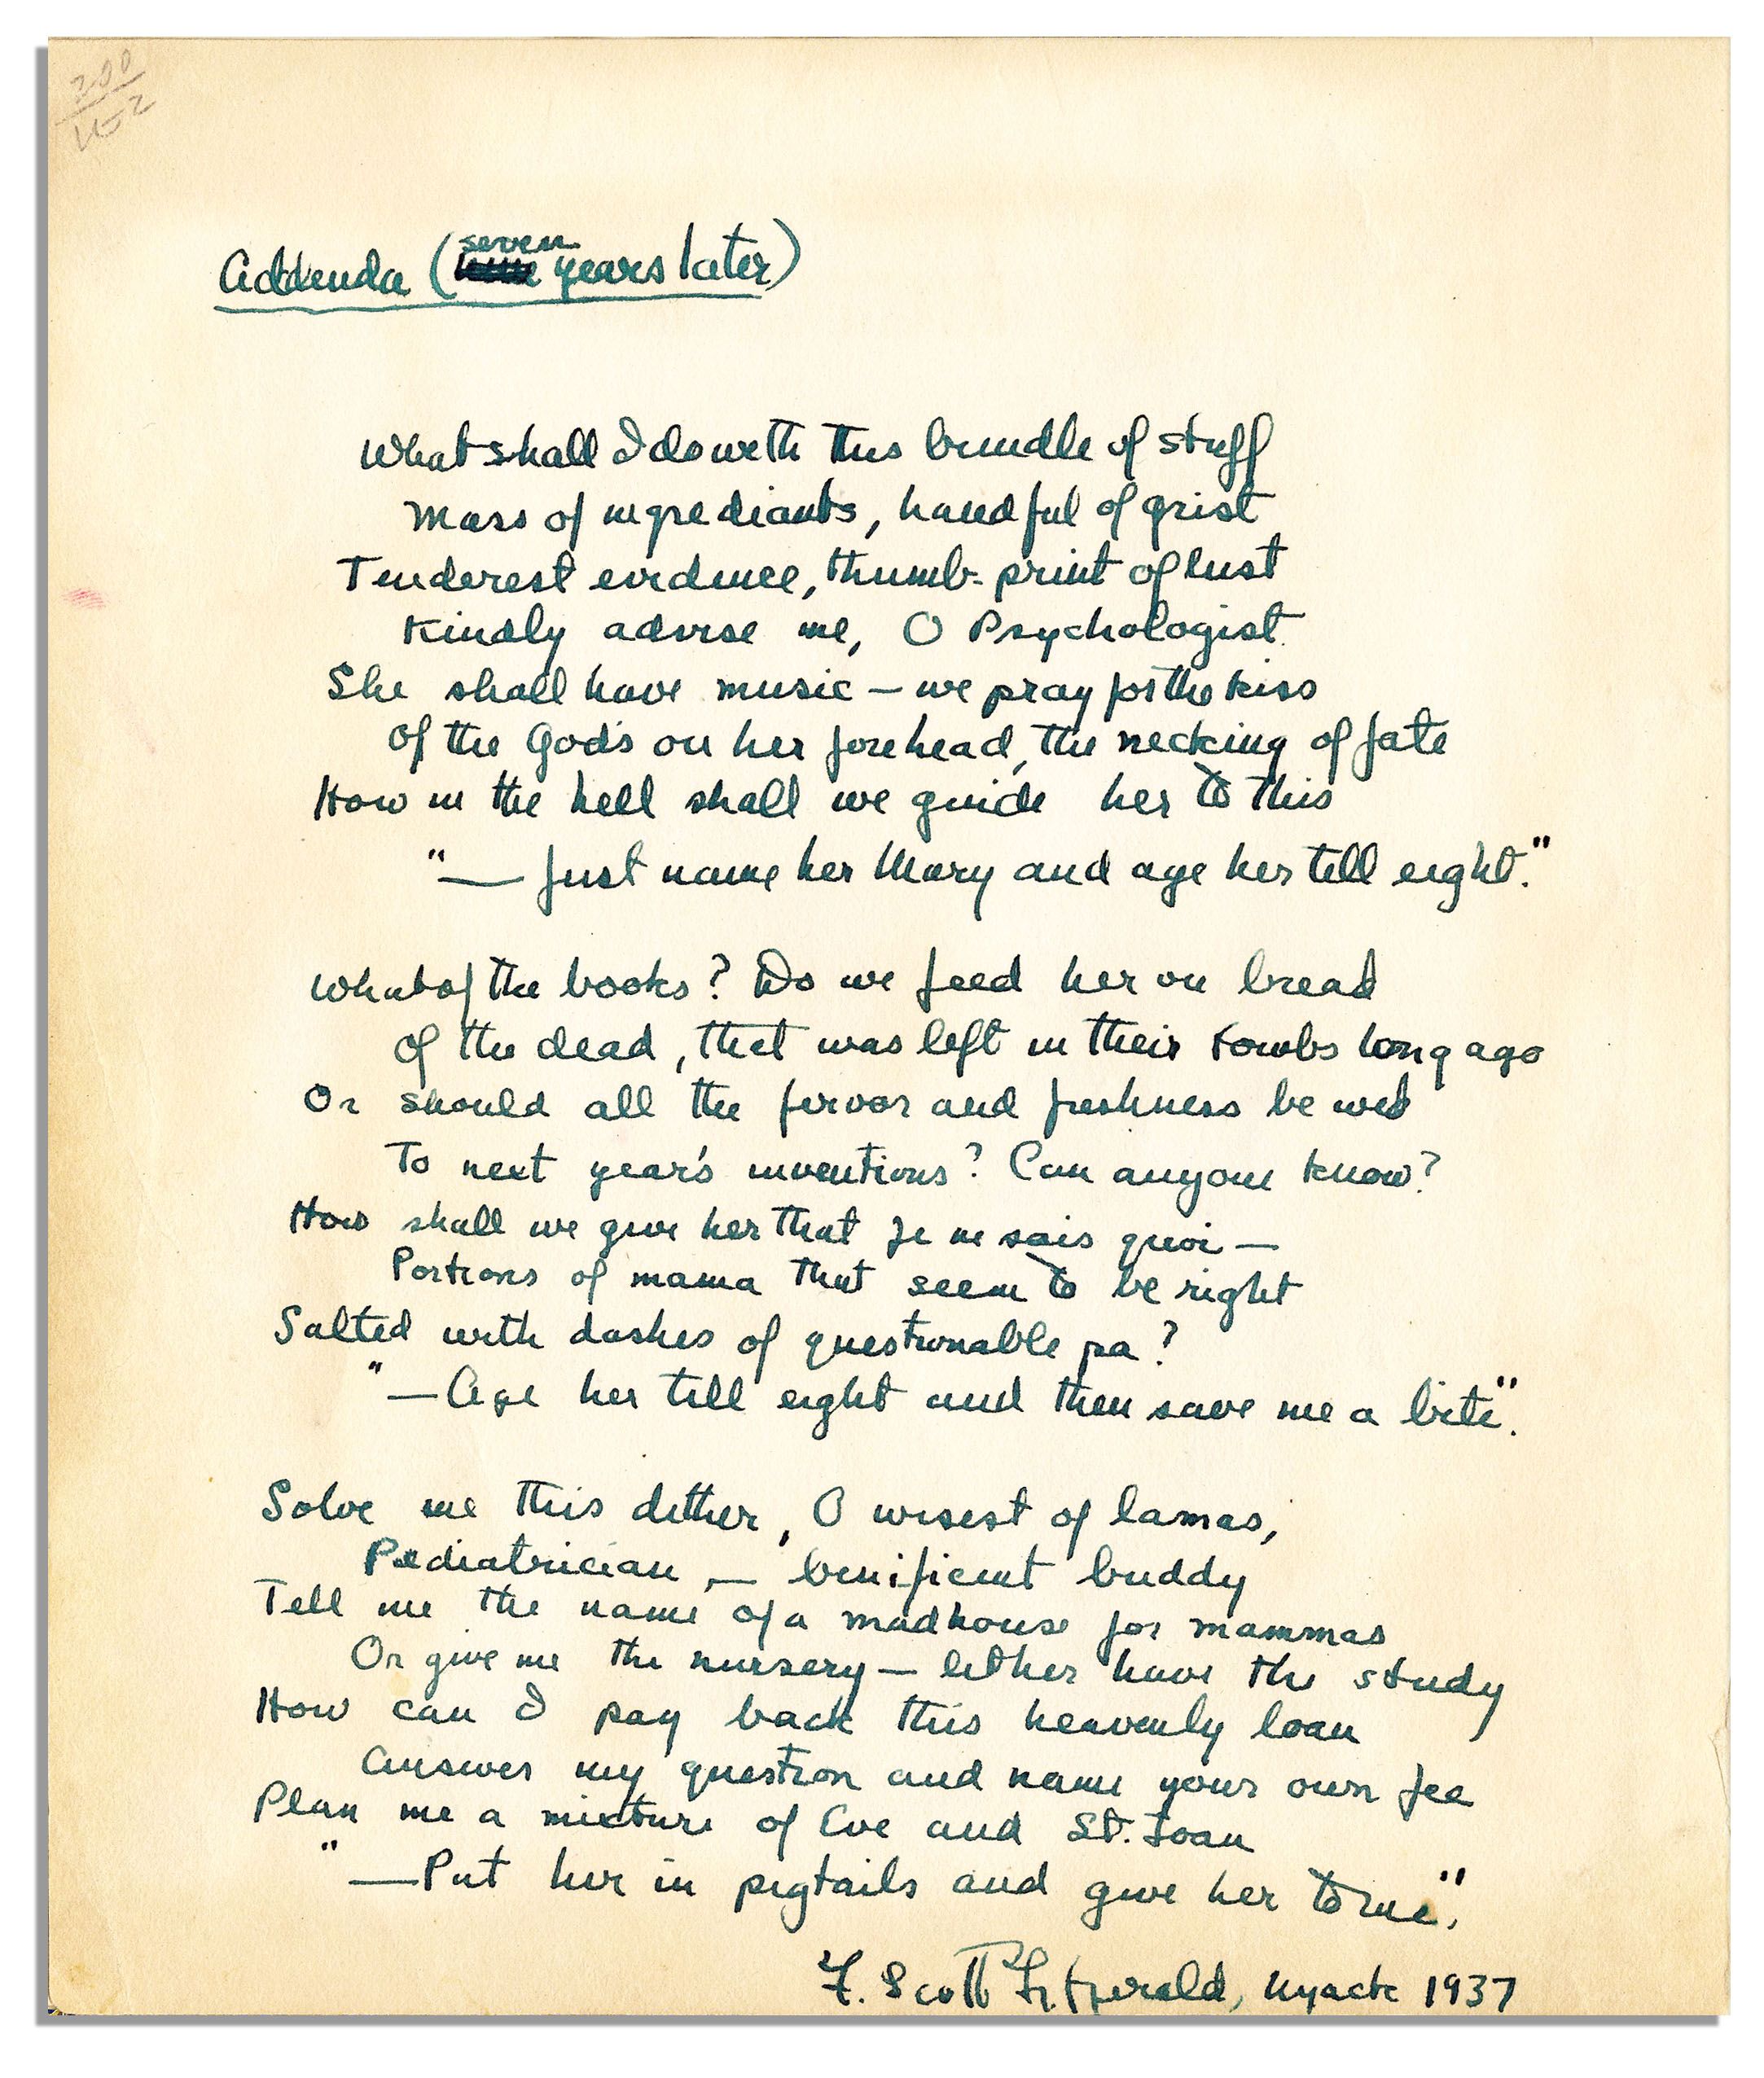 200
152
Addenda (seven years later)
What shall I do with this bundle of stuff
Mass of ingrediants, handful of grist
Tenderest evidence, thumb-print of lust
Kindly advise me, O Psychologist.
She shall have music — we pray for the kiss
Of the Gods on her forehead, the necking of fate
How in the hell shall we guide her to this
"— Just name her Mary and age her till eight."
What of the books? Do we feed her on bread
Of the dead, that was left in their tombs long ago
Or should all the fervor and freshness be wed
To next year's inventions? Can anyone know?
How shall we give her that je ne sais quoi —
Portions of mama that seem to be right
Salted with dashes of questionable pa?
"— Age her till eight and then save me a bite".
Solve me this dither, O wisest of lamas,
Pediatrician — benificent buddy
Tell me the name of a madhouse for mammas
Or give me the nursery — let her have the study
How can I pay back this heavenly loan
Answer my question and name your own fee
Plan me a mixture of Eve and St. Joan
"— Put her in pigtails and give her to me".
F. Scott Fitzgerald, Nyack 1937